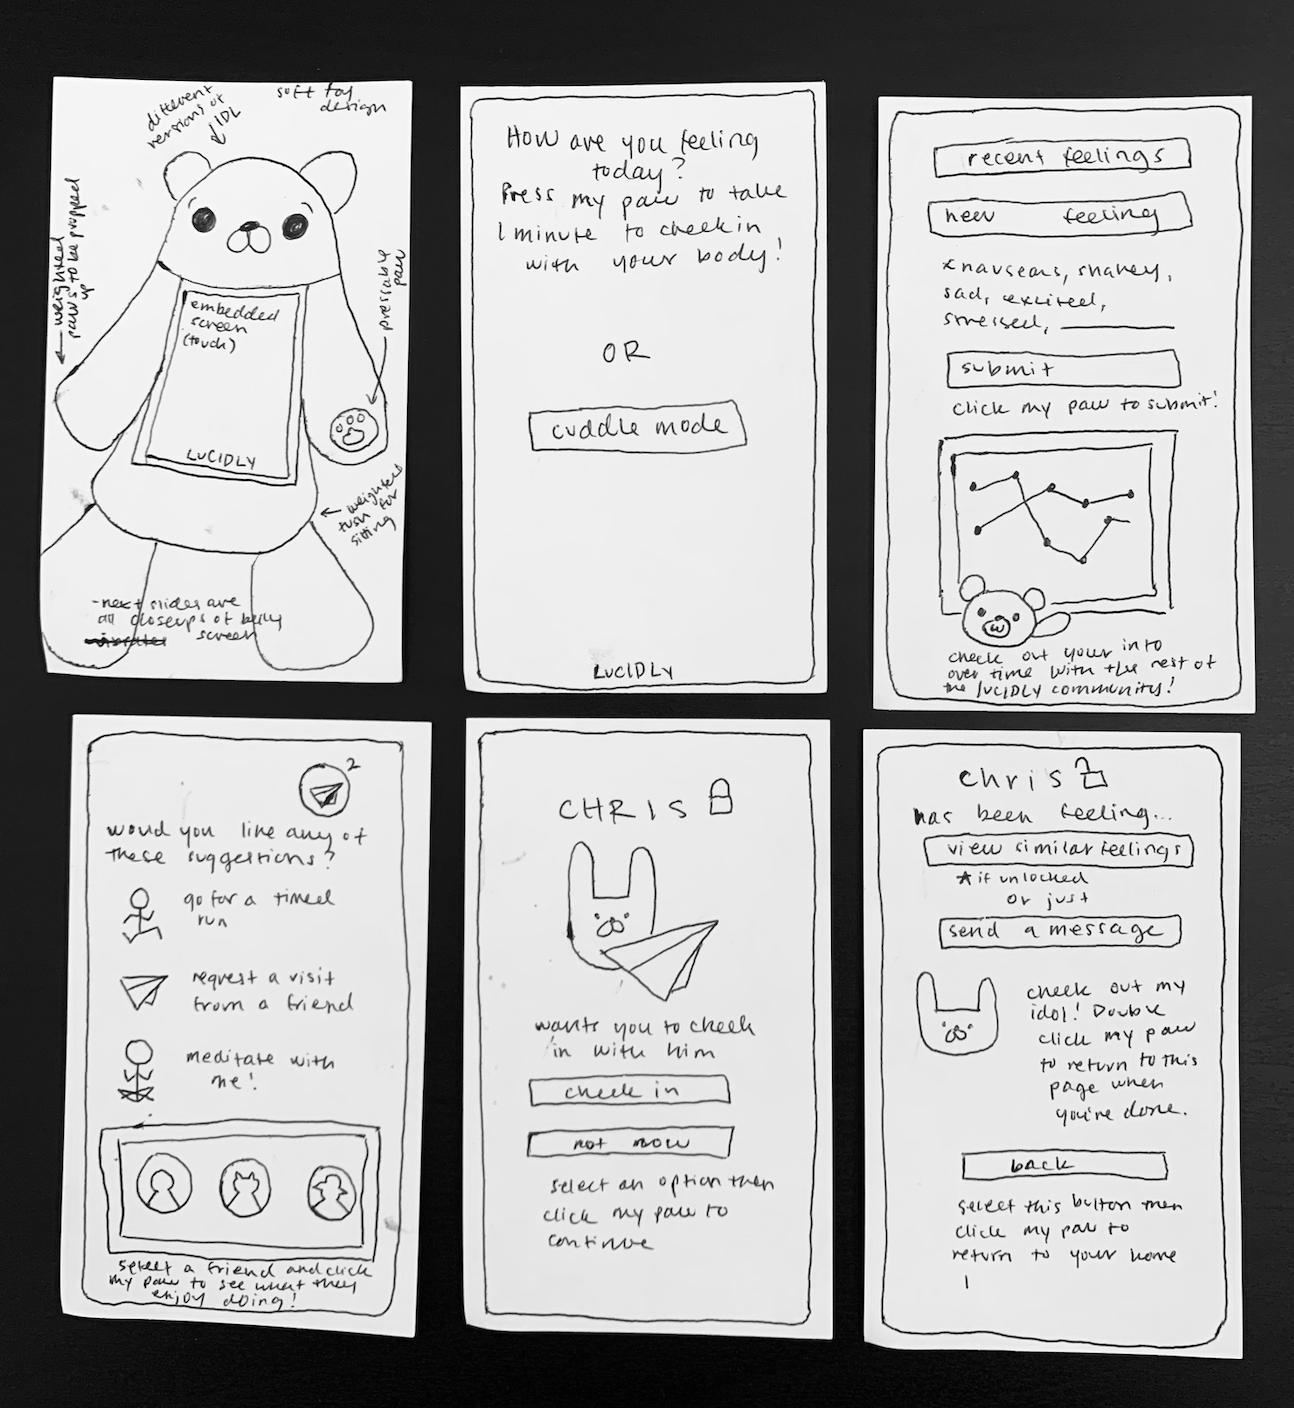 different
versions of
IDL
soft toy
design
weighted
paws to be propped
up
pressable
paw
embedded
screen
(touch)
LUCIDLY
weighted
tush for
sitting
-next slides are
all closeups of belly
screen
How are you feeling
today?
Press my paw to take
1 minute to check in
with your body!
OR
cuddle mode
LUCIDLY
recent feelings
new feeling
*nauseous, shakey,
sad, excited,
stressed,
submit
click my paw to submit!
check out your info
over time with the rest of
the lUCIDLY community!
2
would you like any of
these suggestions?
go for a timed
run
request a visit
from a friend
meditate with
me!
select a friend and click
my paw to see what they
enjoy doing!
CHRIS
wants you to check
in with him
check in
not now
select an option then
click my paw to
continue
chris
has been feeling...
view similar feelings
*if unlocked
or just
send a message
check out my
idol! Double
click my paw
to return to this
page when
you're done.
back
select this button then
click my paw to
return to your home